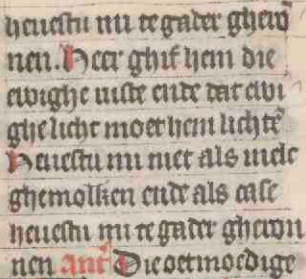 heuestu mi te gader gherō
nen. Heer ghif hem die
ewighe uiste ende dat ewi
ghe licht moet hem lichtē
Heuestu mi niet als melc
ghemolken ende als case
heuestu mi te gader gheron
nen ant Die oetmoedige